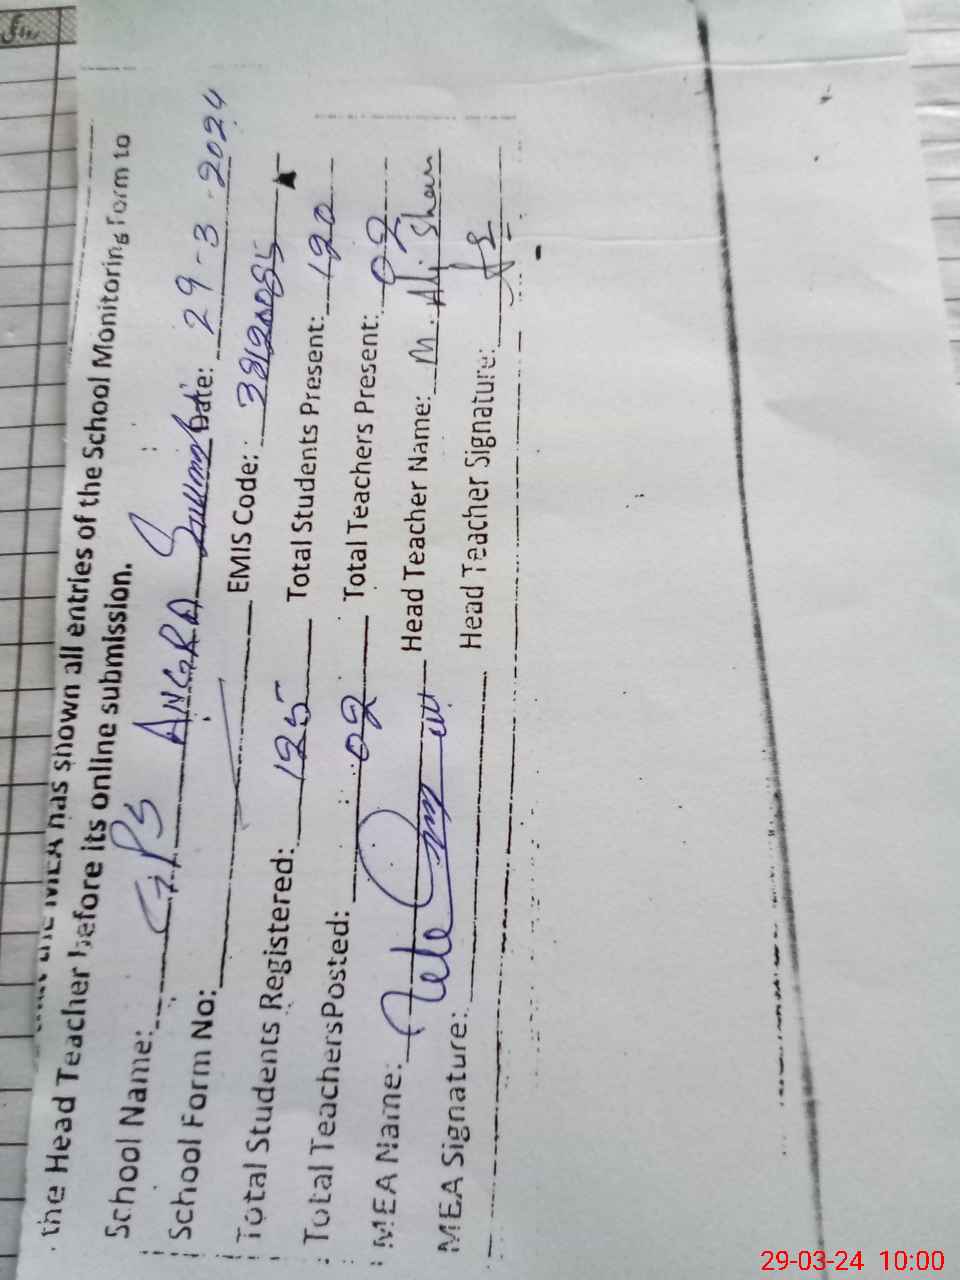 the MEA has shown all entries of the School Monitoring Form to
the Head Teacher before its online submission.
School Name: GPS ANGRA Date: 29-3-2024
School Form No: EMIS Code: 38120085
Total Students Registered: 125 Total Students Present: 120
Total TeachersPosted: 02 Total Teachers Present: 02
MEA Name: Head Teacher Name: M. Ali Shan
MEA Signature: Head Teacher Signature:
29-03-24 10:00